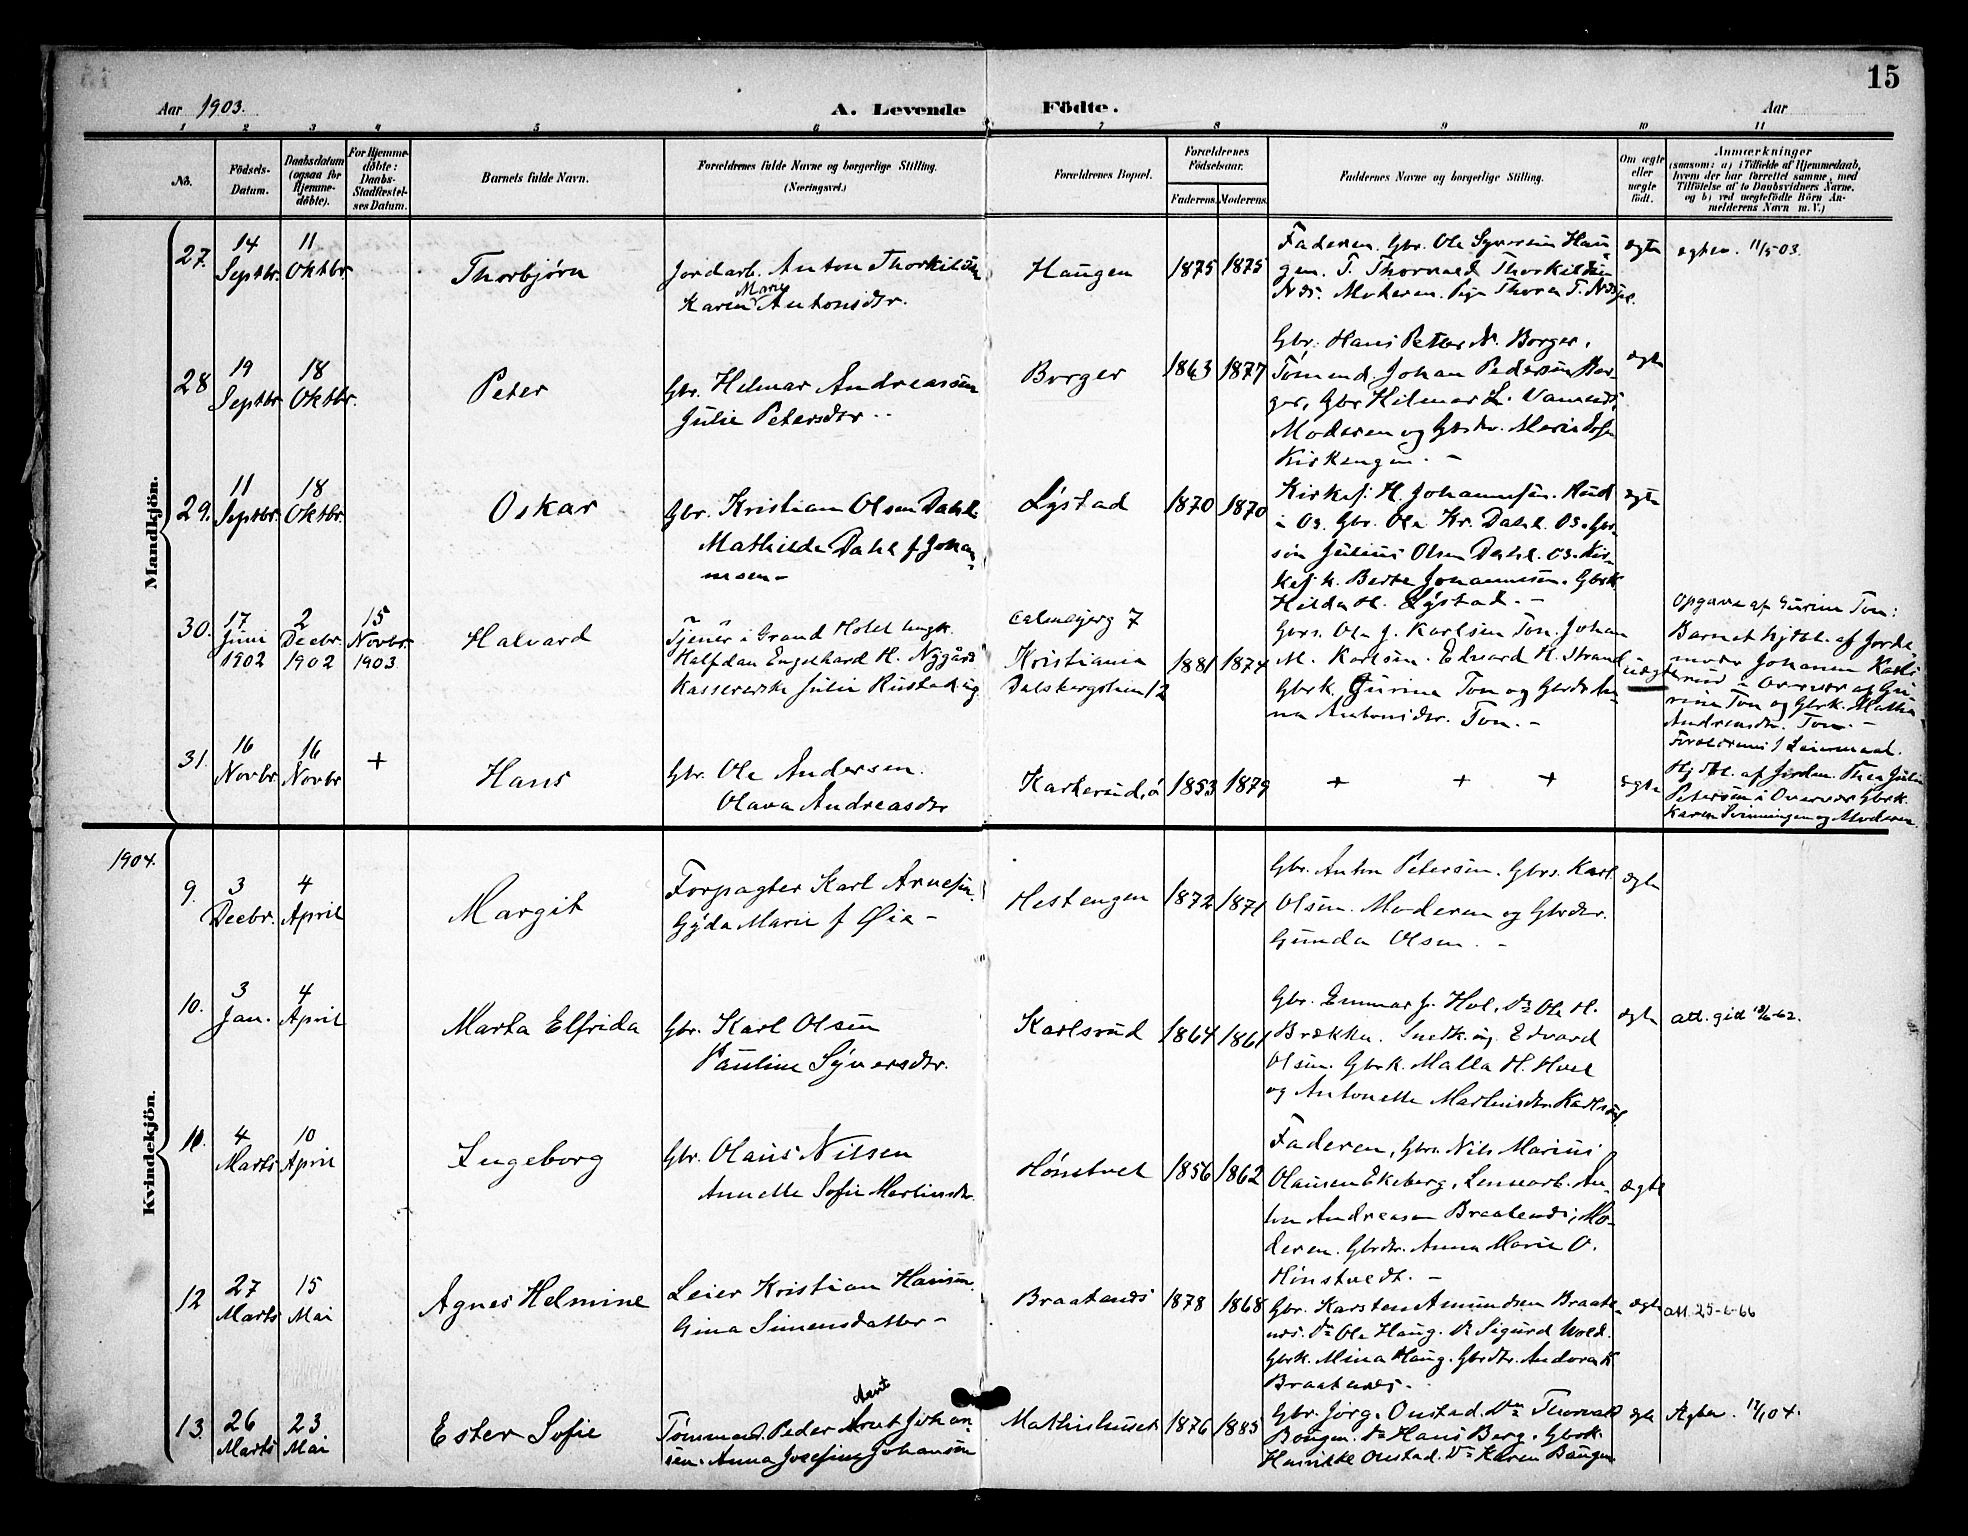 15
Aar 1903. A. Levende Födte. Aar
1 2 3 4 5 6 7 8 9 10 11
No.
Födsels-
Datum.
Daabsdatum
(ogsaa for
Hjemme-
döbte).
For Hjemme-
döbte:
Daabs-
Stadfæstel-
ses Datum.
Barnets fulde Navn.
Forældrenes fulde Navne og borgerlige Stilling.
(Næringsvei.)
Forældrenes Bopæl.
Forældrenes
Födselsaar.
Faderens. Moderens.
Faddernes Navne og borgerlige Stilling.
Om ægte
eller
uægte
födt.
Anmærkninger
(saasom: a) i Tilfælde af Hjemmedaab,
hvem der har forrettet samme, med
Tilföielse af to Daabsvidners Navne.
og b) ved uægtefödte Börn An-
melderens Navn m. V.)
Mandkjön.
27.
14
Septbr.
11
Oktbr.
Thorbjørn
Jordarb. Anton Thorkilds
Karen Marie Antonsdtr.
Haugen
1875 1875
Faderen. Gbr. Ole Syversen Hau-
gen. T. Thorvald Thorkildsen
Nds. Moderen. Pige Thora T.
ægte
egten. 11/5 03.
28
19
Septbr.
18
Oktbr.
Peter
Gbr. Helmar Andreassen
Julie Petersdtr. -
Borger
1863 1877
Gbr. Hans Peter N. Borger.
Tømmend. Johan Pedersen Bor-
ger, Gbr Hilmar L.
Moderen og Gbrdtr. Marie
Kirkengen. -
ægte
29.
11
Septbr.
18
Oktbr.
Oskar
Gbr. Kristian Olsen Dahl
Mathilde Dahl f Johan-
nesen -
Lystad
1870 1870
Kirkesj. H. Johannesen. Rud
i Os. Gbr. Ole Kr. Dahl. Os. Gbr-
søn Julius Olsen Dahl. Os. Kir-
kesj. k. Berte Johannesen. Gbrk.
Hilda H. Lystad. -
ægte
30.
17
Juni
1902
2
Decbr.
1902
15
Novbr.
1903
Halvard
Tjener i Grand Hotel ungk.
Halfdan Engelhard H. Nygård
Kassererske Julie Rustad ug
Calmejerg 7
Kristiania
Dalsbergstien 12
1881 1874
Gbrs. Ole J. Karlsen Ton. Johan
M. Karlsen. Edvard H. Strand
Gbrk. Gurine Ton og Gbrdtr. An-
na Antonsdtr. Ton. -
uægte
Opgave af Gurine Ton:
Barnet hjdbt. af Jorde-
moder Johanne Karls-
rud i Overvær af Gu-
rine Ton og Gbrk. Mathea
Andreasdtr. Ton. -
Forældrenes 1 Leiermaal.
31.
16
Novbr.
16
Novbr.
+
Hans
Gbr. Ole Andersen.
Olava Andreasdtr
Karterud, ø
1853 1879
+ + +
ægte
Hjdbt. af Jordem. Thea Julie
Petersen i Overvær Gbrk.
Karen Svinningen og Moderen.
Kvindekjön.
1904.
9.
3
Decbr.
4
April
Margit
Forpagter Karl Arnesen
Gyda Marie f Øie -
Hestengen
1872 1871
Gbr. Anton Petersen. Gbrs. Karl
Olsen. Moderen og Gbrdtr.
Gunda Olsen. -
ægte
10.
3
Jan.
4
April
Marta Elfrida
Gbr. Karl Olsen
Pauline Syversdtr.
Karlsrud
1864 1861
Gbr. Emmar J. Hol, Do Ole H.
Brække. Snedk. ug. Edvard
Olsen. Gbrk. Malla H. Hoel
og Antonette Martinsdtr. Karlsrud
ægte
att. gitt 18/6-62.
11.
4
Marts
10
April
Ingeborg
Gbr. Olaus Nilsen
Annette Sofie Martinsdtr.
Hønstvet
1856 1862
Faderen, Gbrs. Nils Marius
Olausen Ekeberg, Lennsarb. An-
ton Andreasen Braatends, Mo-
deren. Gbrdtr. Anna Marie O.
Hønstvedt. -
ægte
12
27
Marts
15
Mai
Agnes Helmine
Leier Kristian Hansen.
Gina Simensdatter -
Braatends
1878 1868
Gbr. Karsten Amundsen Braate-
nds. Do Ole Haug. Do Sigurd Wold.
Gbrk. Mina Haug. Gbrdtr. Andora K
Braatends. -
ægte
att 25-6-66
13.
26
Marts
23
Mai
Ester Sofie
Aant
Tømmerm. Peder Arnt Johan-
sen. Anna Josefine Johansen
Mathishuset
1876 1885
Gbr. Jörg. Onstad. Do Thorvald
Bougen. Do Hans Berg. Gbrk.
Henrikke Onstad. Do Karen Baugen
ægte
Agter. 12/1 04.